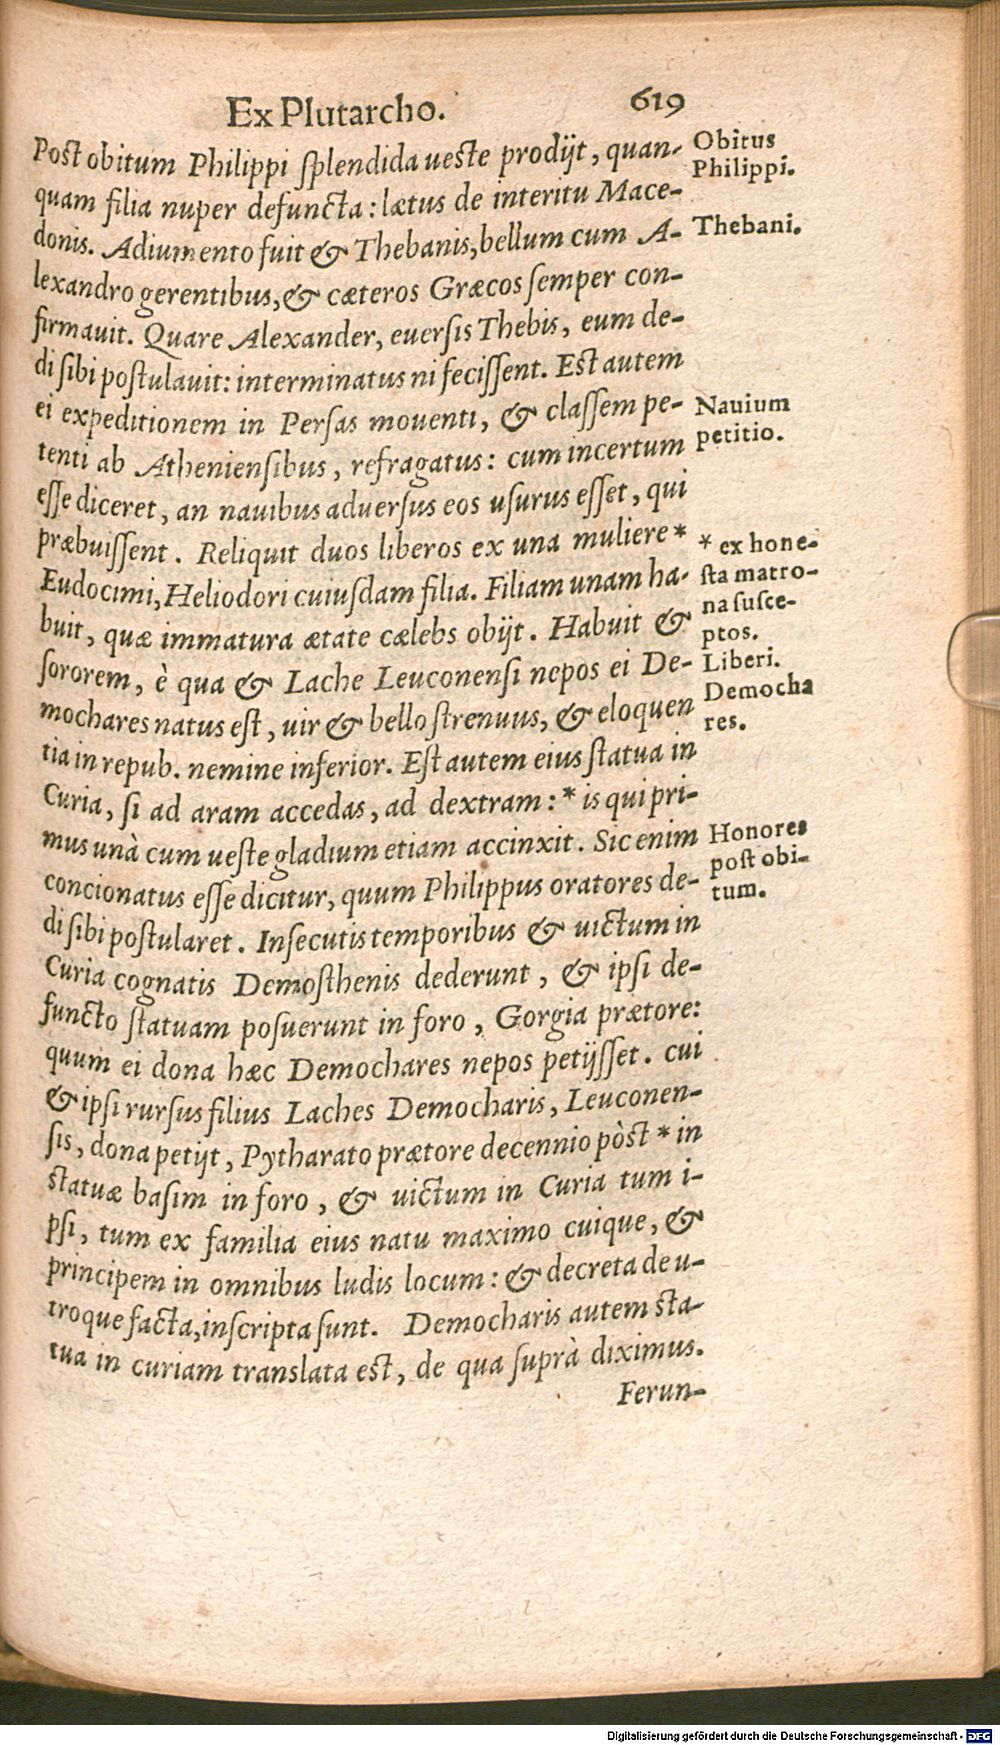 Ex Plutarcho. 619
Post obitum Philippi splendida ueste prodijt, quan-
quam filia nuper defuncta: lætus de interitu Mace-
donis. Adiumento fuit & Thebanis, bellum cum A-
lexandro gerentibus, & cæteros Græcos semper con-
firmauit. Quare Alexander, euersis Thebis, eum de-
di sibi postulauit: interminatus ni fecissent. Est autem
ei expeditionem in Persas mouenti, & classem pe-
tenti ab Atheniensibus, refragatus: cum incertum
esse diceret, an nauibus aduersus eos usurus esset, qui
præbuissent. Reliquit duos liberos ex una muliere *
Eudocimi, Heliodori cuiusdam filia. Filiam unam ha-
buit, quæ immatura ætate cælebs obijt. Habuit &
sororem, è qua & Lache Leuconensi nepos ei De-
mochares natus est, uir & bello strenuus, & eloquen
tia in repub. nemine inferior. Est autem eius statua in
Curia, si ad aram accedas, ad dextram: * is qui pri-
mus unà cum ueste gladium etiam accinxit. Sic enim
concionatus esse dicitur, quum Philippus oratores de-
di sibi postularet. Insecutis temporibus & uictum in
Curia cognatis Demosthenis dederunt, & ipsi de-
functo statuam posuerunt in foro, Gorgia prætore:
quum ei dona hæc Demochares nepos petijsset. cui
& ipsi rursus filius Laches Democharis, Leuconen-
sis, dona petijt, Pytharato prætore decennio pòst * in
statuæ basim in foro, & uictum in Curia tum i-
psi, tum ex familia eius natu maximo cuique, &
principem in omnibus ludis locum: & decreta de u-
troque facta, inscripta sunt. Democharis autem sta-
tua in curiam translata est, de qua suprà diximus.
Ferun-
Obitus
Philippi.
Thebani.
Nauium
petitio.
* ex hone-
sta matro-
na susce-
ptos.
Liberi.
Democha
res.
Honores
post obi-
tum.
Digitalisierung gefördert durch die Deutsche Forschungsgemeinschaft - DFG